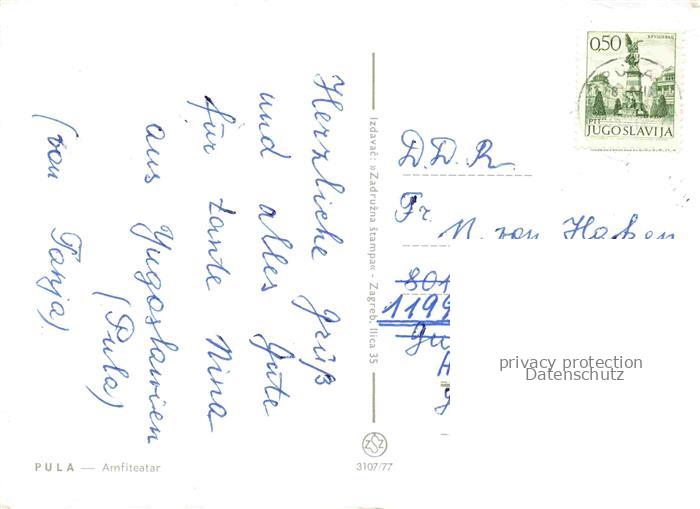 Herzliche Grüß
und alles Gute
für tante Nina
aus Yugoslawien
(Pula)
(von Tanja)
PULA — Amfiteatar
Izdavač: »Zadružna štampa« - Zagreb, Ilica 35
ZŠZ
3107/77
0,50
КРУШЕВАЦ
PULA
PTT
JUGOSLAVIJA
D.D.R.
Fr. N. von Haken
801
1199
privacy protection
Datenschutz